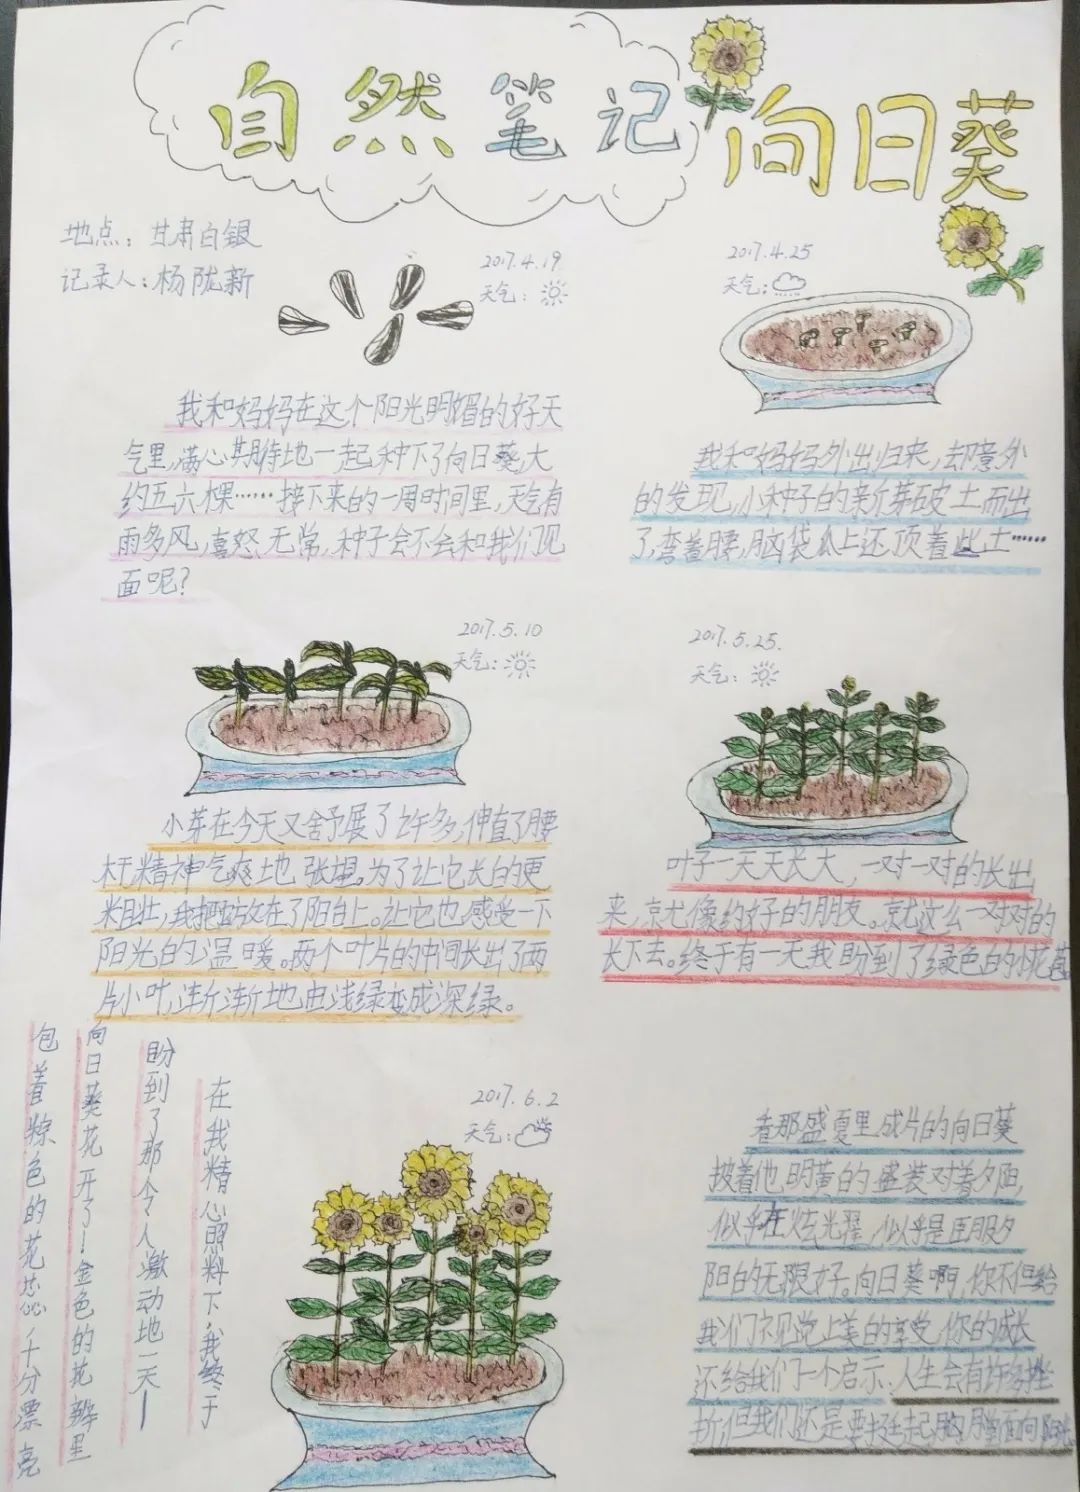 自然笔记
向日葵
地点：甘肃白银
记录人：杨陇新
2017.4.19
天气：
我和妈妈在这个阳光明媚的好天
气里，满心期待地一起种下了向日葵，大
约五六棵……接下来的一周时间里，天气有
雨多风，喜怒无常，种子会不会和我们见
面呢？
2017.4.25
天气：
我和妈妈外出归来，却意外
的发现，小种子的新芽破土而出
了，弯着腰，脑袋瓜上还顶着些土……
2017.5.10
天气：
小芽在今天又舒展了许多，伸直了腰
杆，精神气爽地张望。为了让它长的更
粗壮，我把放在了阳台上。让它也感受一下
阳光的温暖。两个叶片的中间长出了两
片小叶，渐渐地由浅绿变成深绿。
2017.5.25.
天气：
叶子一天天长大，一对一对的长出
来，就像约好的朋友。就这么一对对的
长下去。终于有一天我盼到了绿色的小花苞
2017.6.2
天气：
在我精心照料下，我终于
盼到了那令人激动地一天——
向日葵花开了！金色的花瓣里
包着棕色的花蕊，十分漂亮
看那盛夏里成片的向日葵
披着他明黄的盛装对着夕阳，
似乎在炫光耀，似乎是臣服夕
阳的无限好。向日葵啊，你不但给
我们视觉上美的享受，你的成长
还给我们一个启示、人生会有许多挫
折，但我们还是要挺起胸膛面向阳光